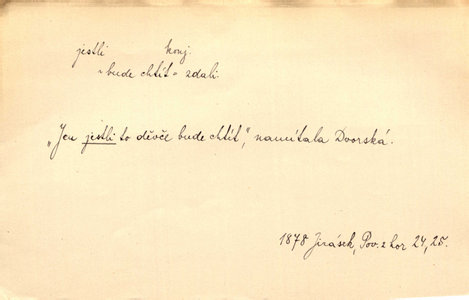 jestli konj.
„bude chtít“ zdali
„Jen jestli to děvče bude chtít,“ namítala Dvorská.
1878 Jirásek, Pov. z hor 24, 25.